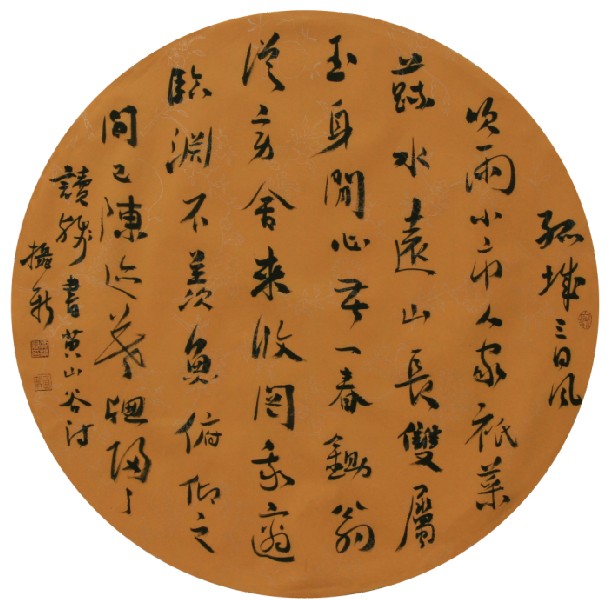 孤城三日風
吹雨小市人家祇菜
蔬水遠山長雙屬
玉身閒心苦一春鋤翁
從旁舍來收罔我適
臨淵不羨魚俯仰之
間已陳迹暮窗歸了
讀殘書黃山谷詩